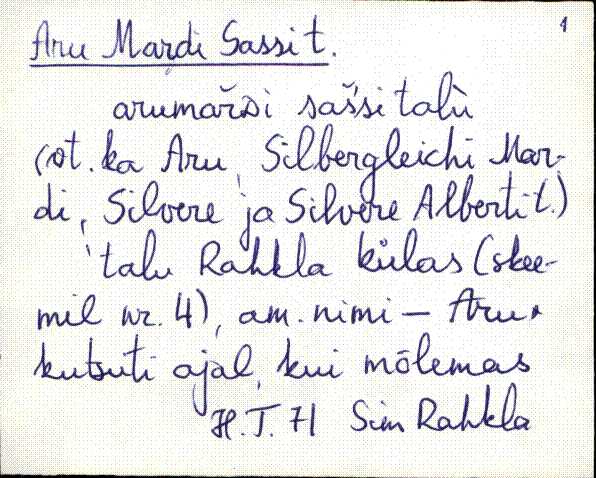 1
Aru Mardi Sassi t.
arumaŕdi sašsi talù
(vt. ka Aru, Silbergleichi Mar-
di, Silvere ja Silvere Alberti t.)
talu Rahkla külas (skee-
mil nr. 4), am. nimi – Aru.
kutsuti ajal, kui mõlemas
H.T. 71 Sim Rahkla